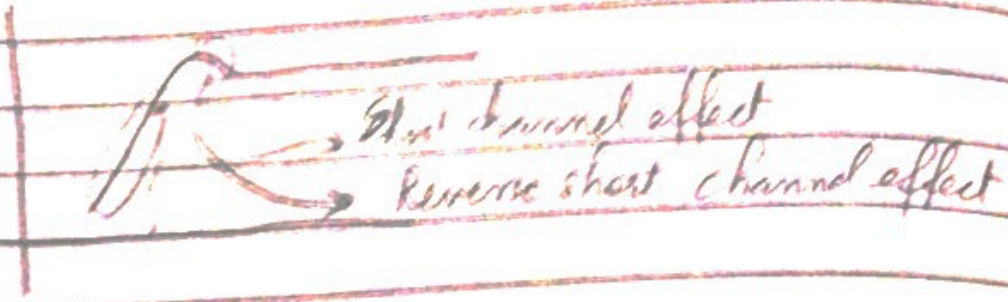 Short channel effect
Reverse short channel effect